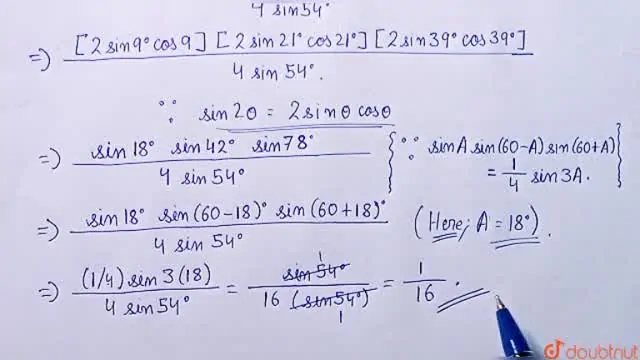 4 sin54°
=> [2sin9°cos9] [2sin21°cos21°] [2sin39°cos39°]
4 sin 54°.
∵ sin2θ = 2sinθ cosθ
=> sin18° sin42° sin78° {∵ sinA sin(60-A) sin(60+A)
4 sin54° = 1/4 sin3A.}
=> sin18° sin(60-18)° sin(60+18)° (Here; A = 18°).
4 sin54°
=> (1/4) sin3(18) / 4 sin54° = sin54° 1 / 16 (sin54°) 1 = 1/16.
doubtnut